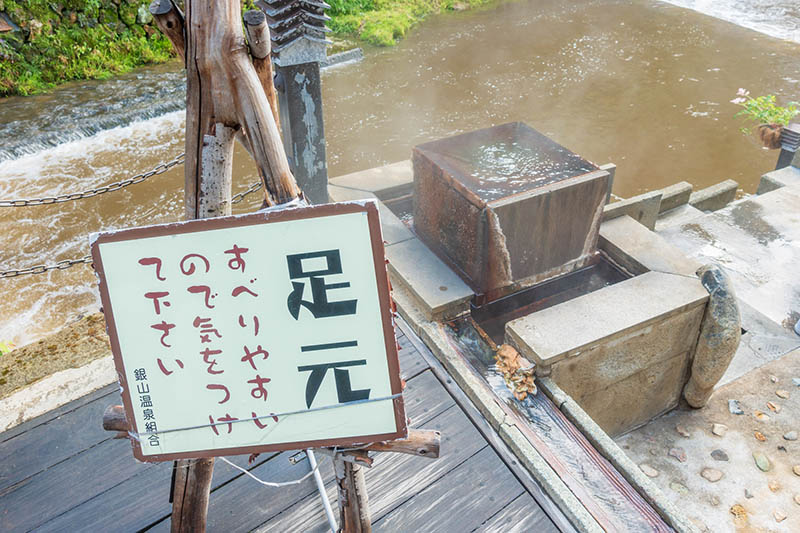 足元
すべりやすい
ので気をつけ
て下さい
銀山温泉組合